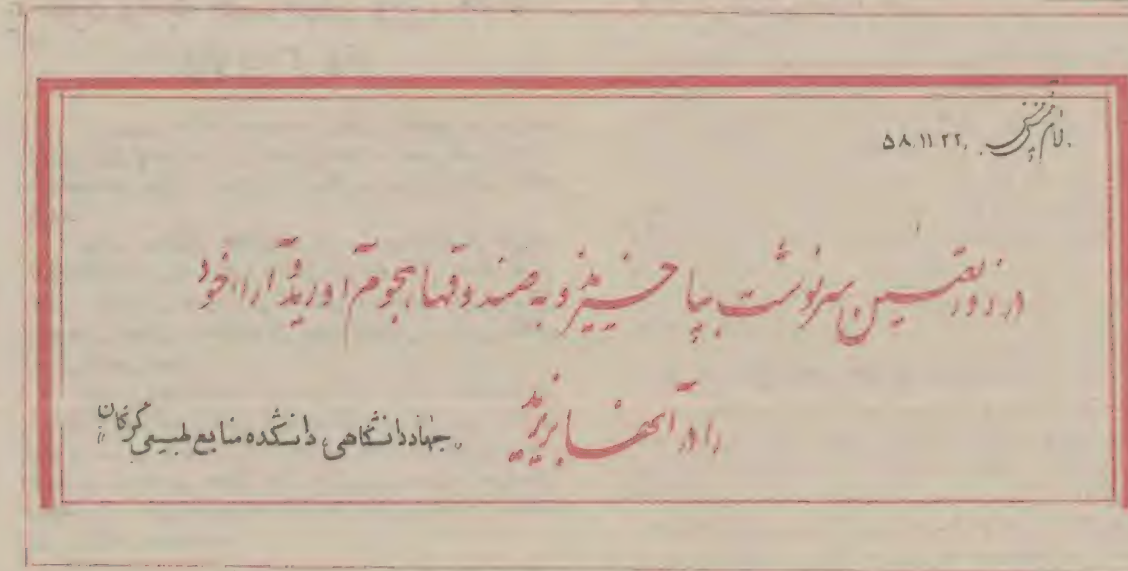 امام خمینی ۵۸.۱۱.۲۲
در روز تعیین سرنوشت بپا خیزید و به صندوقها هجوم آورید و آراء خود
را در آنها بریزید
"جهاد دانشگاهی دانشکده منابع طبیعی گرگان"